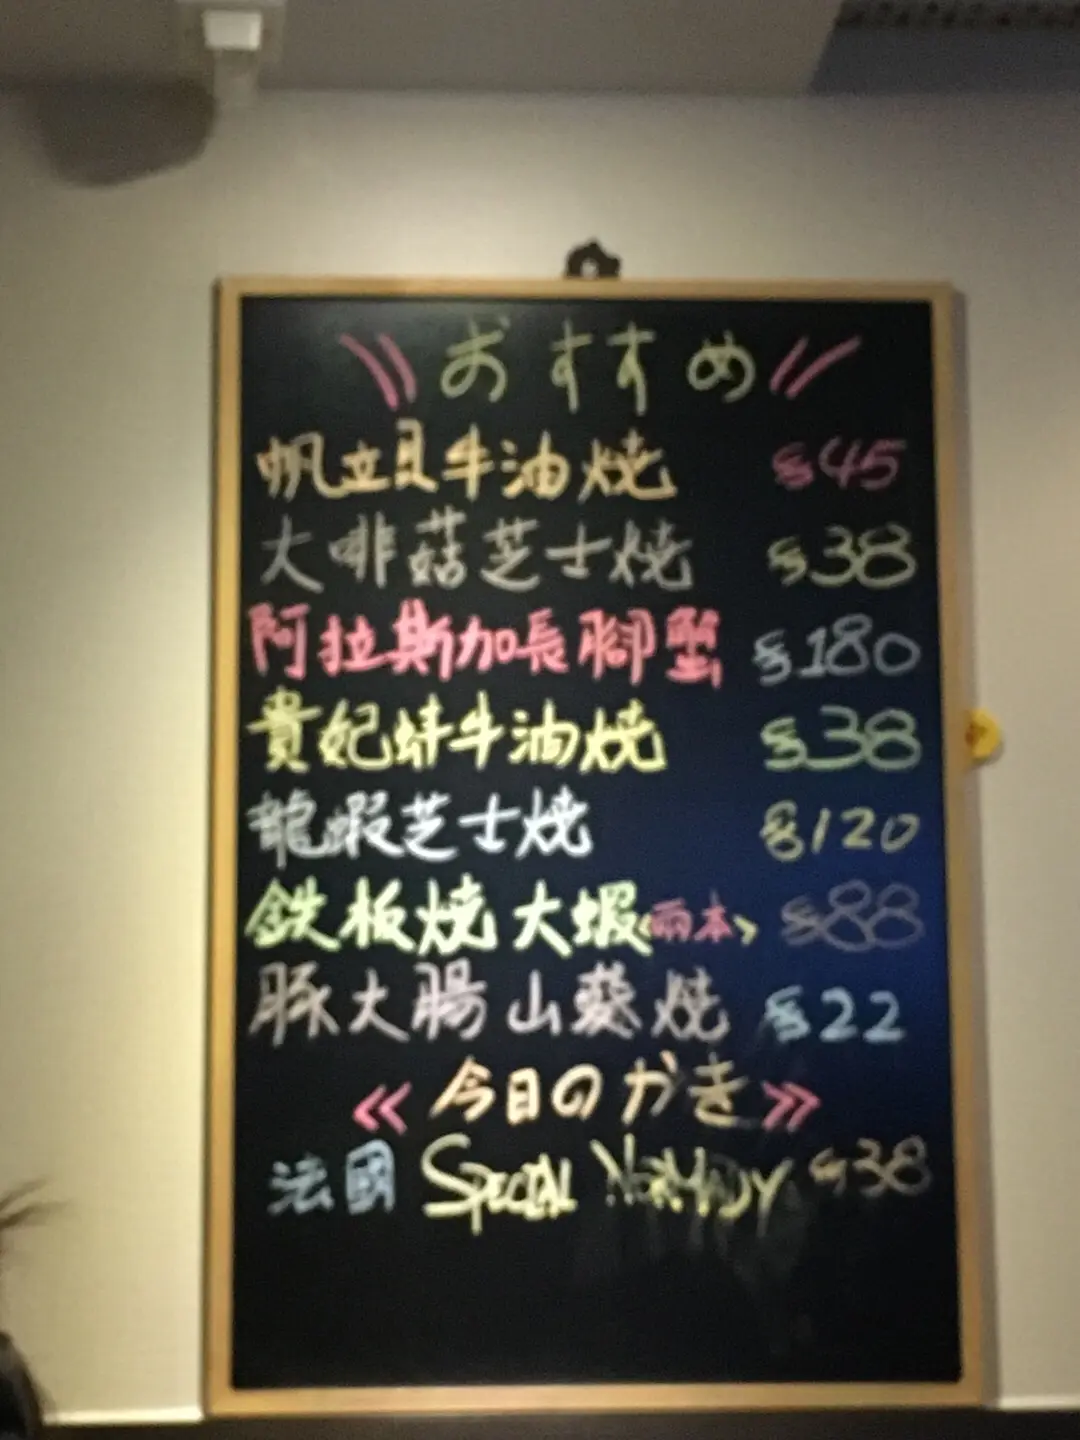 \\ おすすめ //
帆立貝牛油燒 $45
大啡菇芝士燒 $38
阿拉斯加長腳蟹 $180
貴妃蚌牛油燒 $38
龍蝦芝士燒 $120
鉄板燒大蝦<兩本> $88
豚大腸山葵燒 $22
《今日のかき》
法國 SPECIAL NORMADY $38